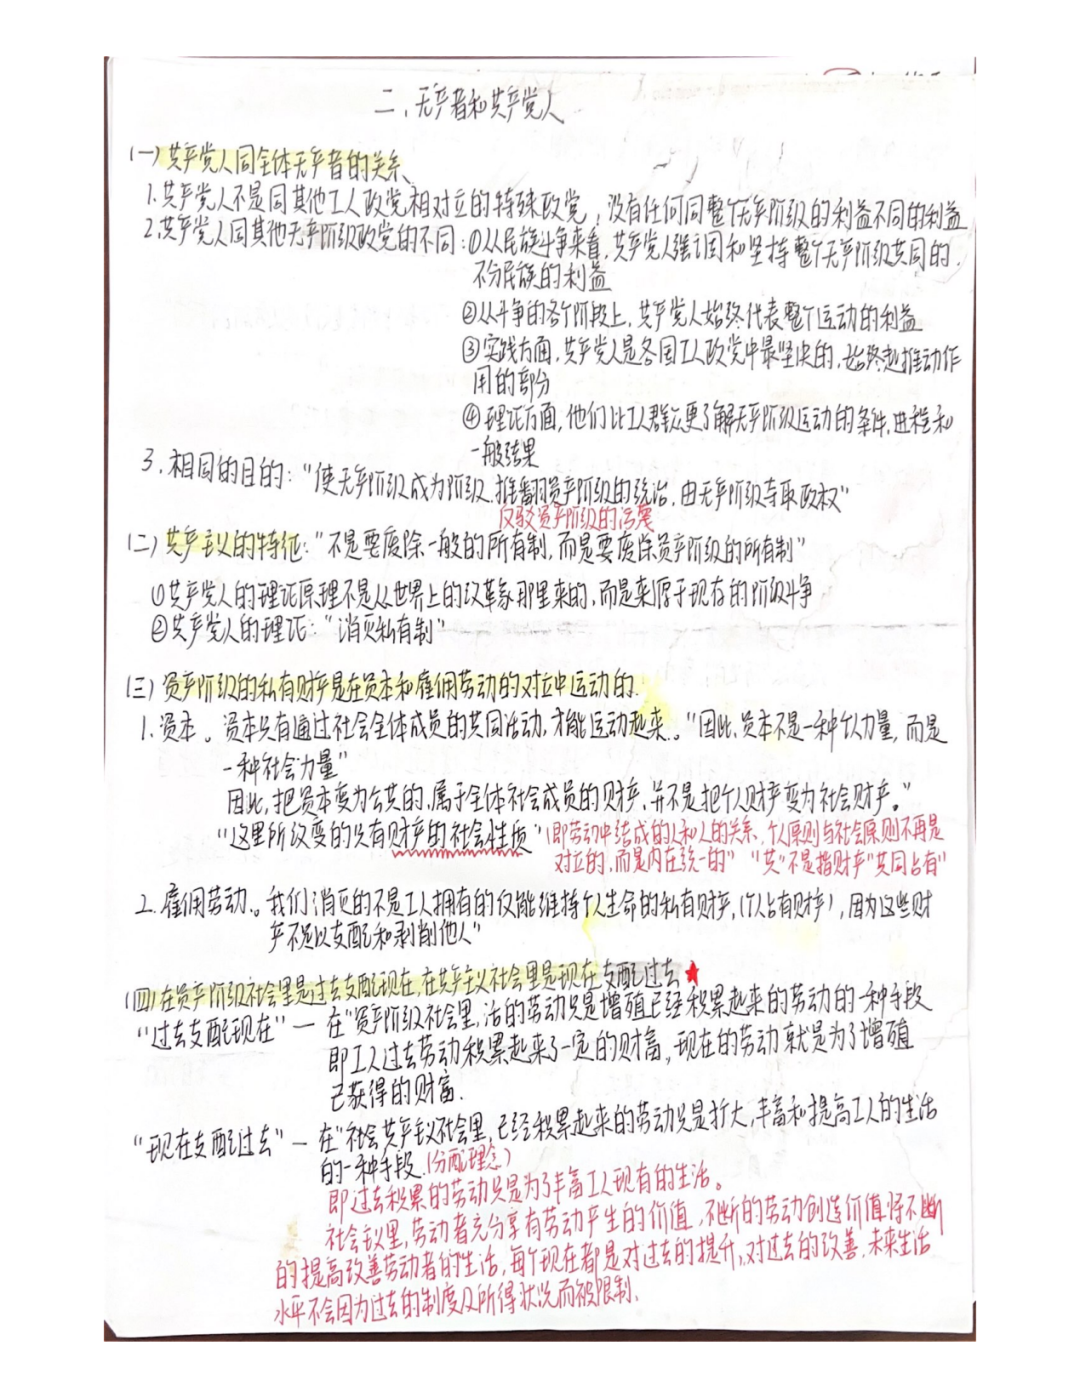 二、无产者和共产党人
(一)共产党人同全体无产者的关系
1.共产党人不是同其他工人政党相对立的特殊政党，没有任何同整个无产阶级的利益不同的利益
2.共产党人同其他无产阶级政党的不同：①从民族斗争来看，共产党人强调和坚持整个无产阶级共同的、
不分民族的利益
②从斗争的各个阶段上，共产党人始终代表整个运动的利益
③实践方面，共产党人是各国工人政党中最坚决的，始终起推动作
用的部分
④理论方面，他们比工人群众更了解无产阶级运动的条件、进程和
一般结果
3.相同的目的：“使无产阶级成为阶级，推翻资产阶级的统治，由无产阶级夺取政权”
反驳资产阶级的污蔑
(二)共产主义的特征：“不是要废除一般的所有制，而是要废除资产阶级的所有制”
①共产党人的理论原理不是从世界上的改革家那里来的，而是来源于现存的阶级斗争
②共产党人的理论：“消灭私有制”
(三)资产阶级的私有财产是在资本和雇佣劳动的对立中运动的.
1.资本。资本只有通过社会全体成员的共同活动，才能运动起来。“因此，资本不是一种个人力量，而是
一种社会力量”
因此，把资本变为公共的，属于全体社会成员的财产，并不是把个人财产变为社会财产。”
“这里所改变的只有财产的社会性质”(即劳动中结成的人和人的关系，个人原则与社会原则不再是
对立的，而是内在统一的” “共”不是指财产“共同占有”
2.雇佣劳动。我们消灭的不是工人拥有的仅能维持个人生命的私有财产，(个人占有财产)，因为这些财
产不足以支配和剥削他人”
(四)在资产阶级社会里是过去支配现在，在共产主义社会里是现在支配过去★
“过去支配现在” — 在“资产阶级社会里，活的劳动只是增殖已经积累起来的劳动的一种手段
即工人过去劳动积累起来了一定的财富，现在的劳动就是为了增殖
已获得的财富.
“现在支配过去” — 在“社会共产主义社会里，已经积累起来的劳动只是扩大，丰富和提高工人的生活
的一种手段.(分配理念)
即过去积累的劳动只是为了丰富工人现有的生活。
社会主义里，劳动者充分享有劳动产生的价值，不断的劳动创造价值将不断
的提高改善劳动者的生活，每个现在都是对过去的提升，对过去的改善，未来生活
水平不会因为过去的制度及所得状况而被限制.